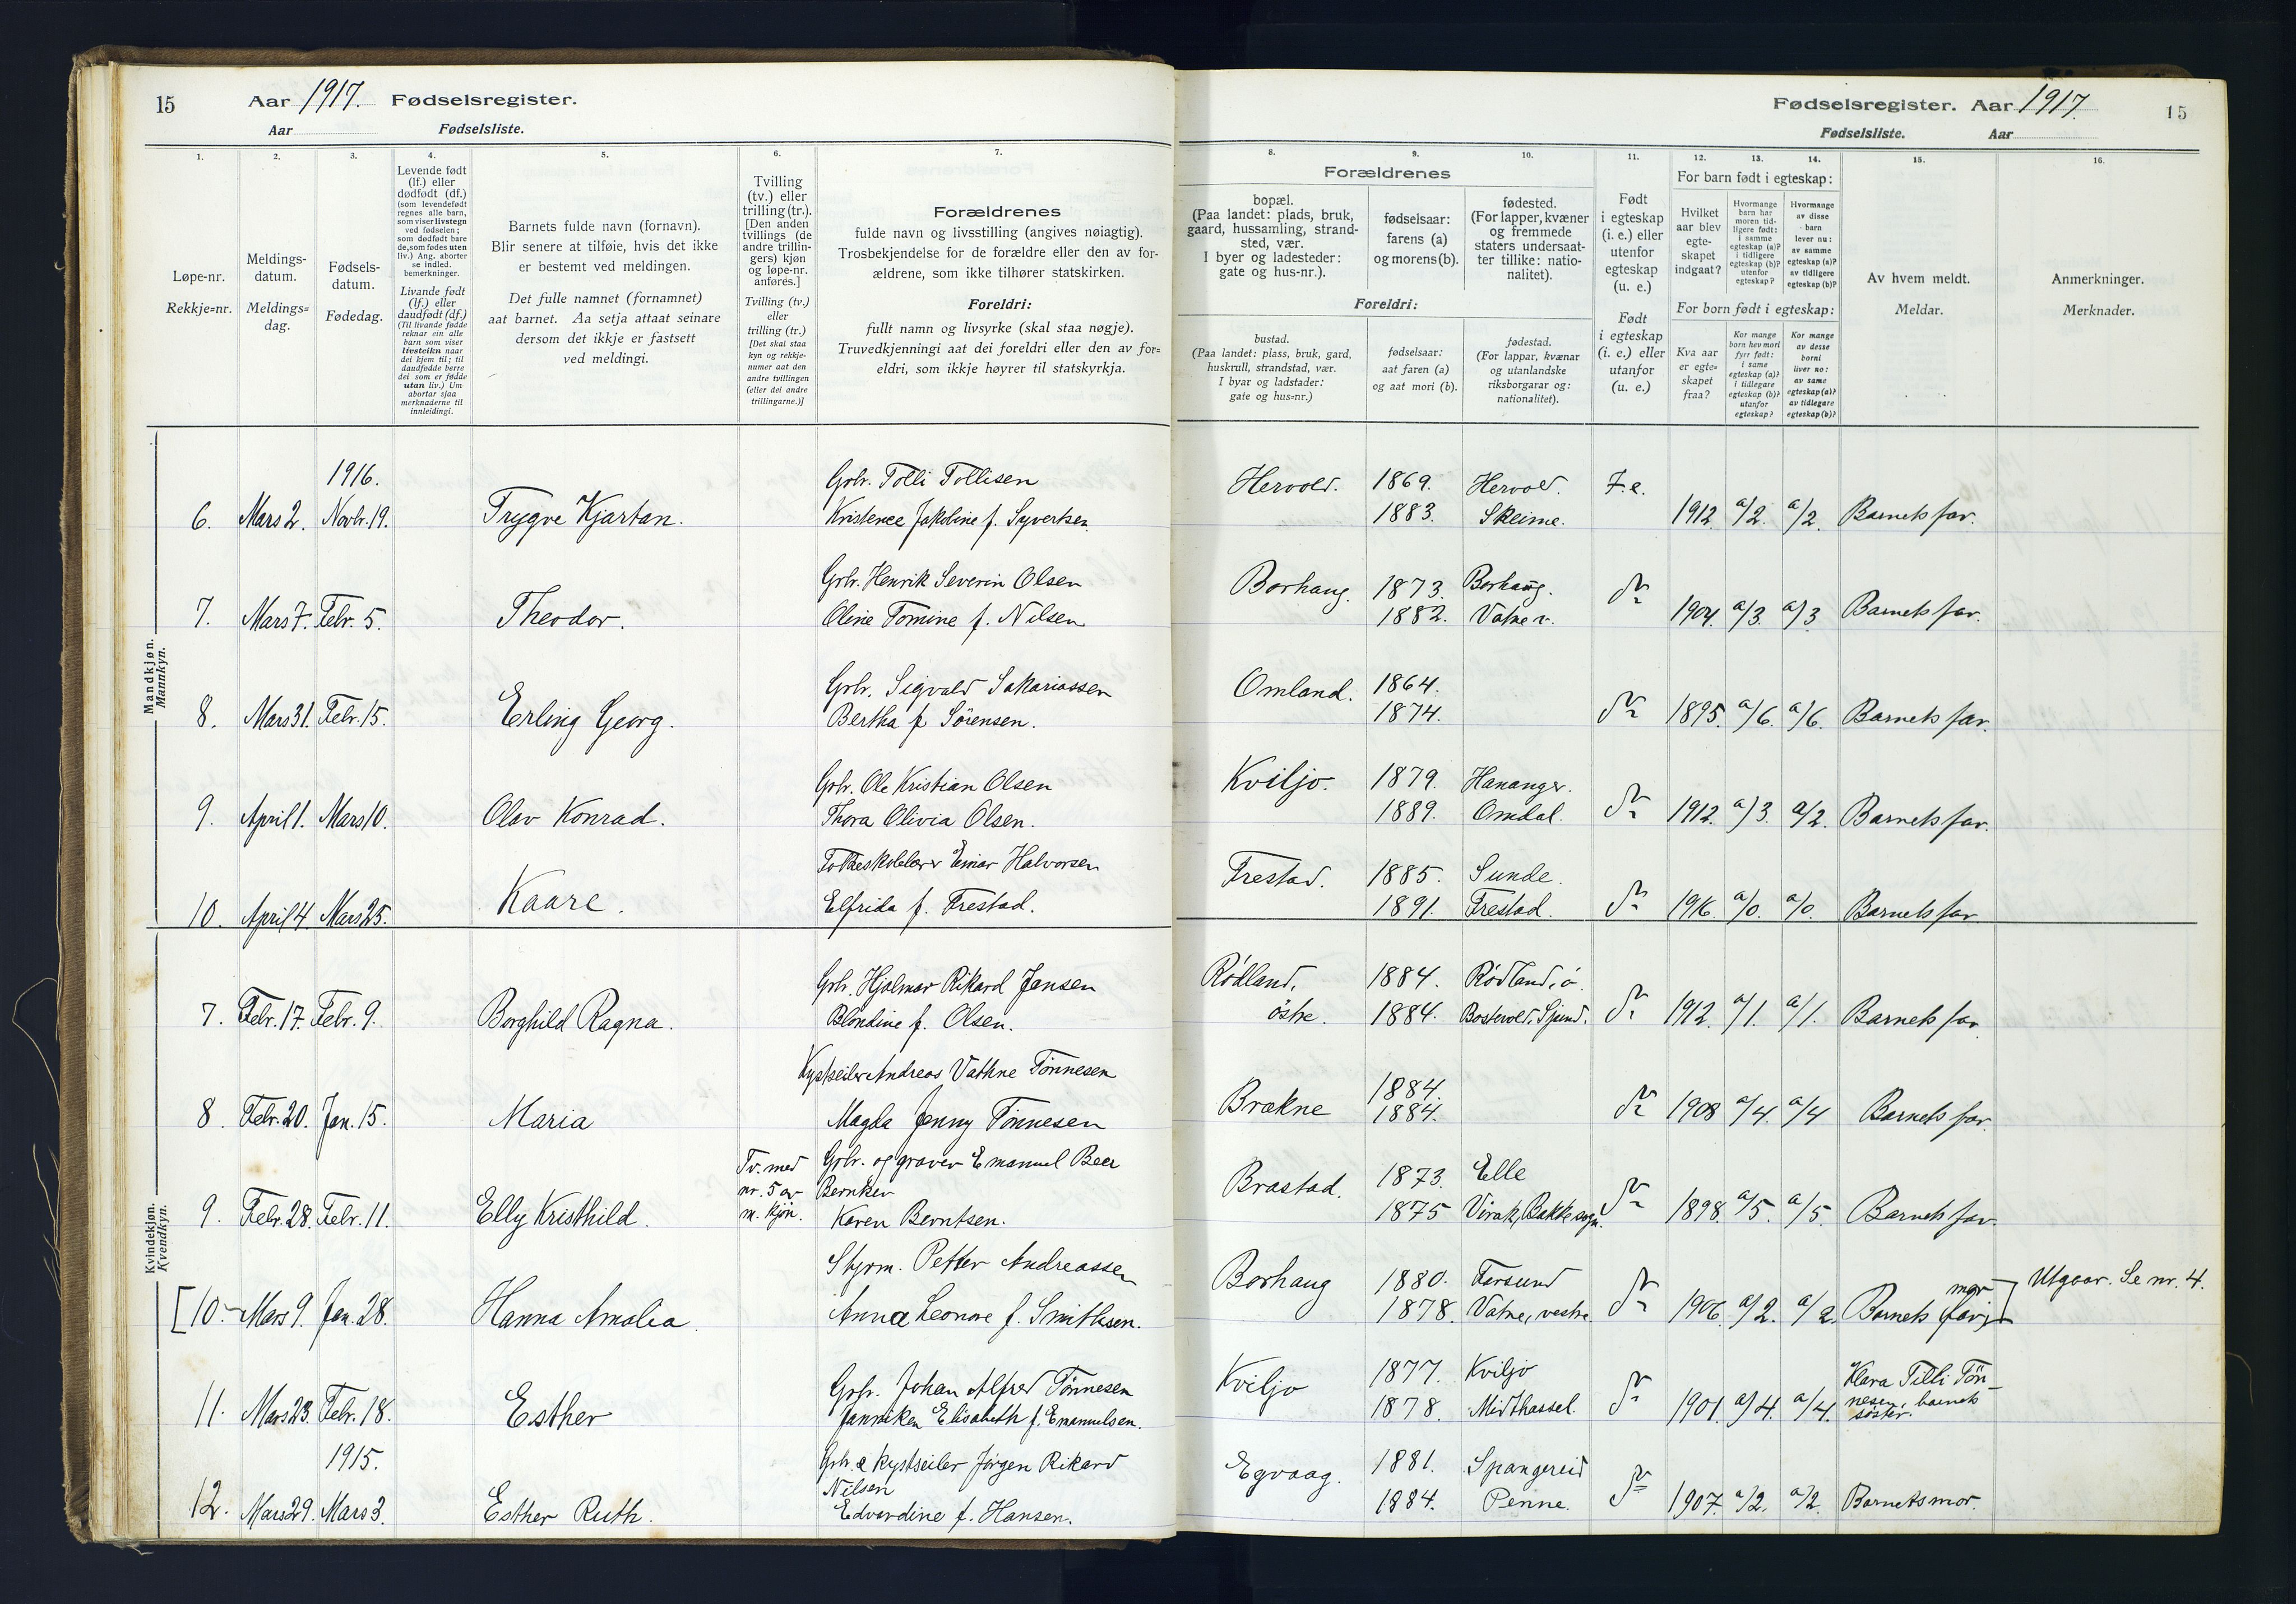 15 Aar 1917. Fødselsregister.
Aar Fødselsliste.
1. 2. 3. 4. 5. 6. 7.
Løpe-nr.
Rekkje=nr.
Meldings-
datum.
Meldings=
dag.
Fødsels-
datum.
Fødedag.
Levende født
(lf.) eller
dødfødt (df.)
(som levendefødt
regnes alle barn,
som viser livstegn
ved fødselen;
som dødfødt bare
de, som fødes uten
liv.) Ang. aborter
se indled.
bemerkninger.
Livande født
(lf.) eller
daudfødt (df.)
(Til livande fødde
reknar ein alle
barn som viser
livsteikn naar
dei kjem til; til
daudfødde berre
dei som er fødde
utan liv.) Um
abortar sjaa
merknaderne til
innleidingi.
Barnets fulde navn (fornavn).
Blir senere at tilføie, hvis det ikke
er bestemt ved meldingen.
Det fulle namnet (fornamnet)
aat barnet. Aa setja attaat seinare
dersom det ikkje er fastsett
ved meldingi.
Tvilling
(tv.) eller
trilling (tr.).
[Den anden
tvillings (de
andre trillin-
gers) kjøn
og løpe-nr.
anføres.]
Tvilling (tv.)
eller
trilling (tr.)
[Det skal staa
kyn og rekkje-
numer aat den
andre tvillingen
(eller dei andre
trillingarne.)]
Forældrenes
fulde navn og livsstilling (angives nøiagtig).
Trosbekjendelse for de forældre eller den av for-
ældrene, som ikke tilhører statskirken.
Foreldri:
fullt namn og livsyrke (skal staa nøgje).
Truvedkjenningi aat dei foreldri eller den av for=
eldri, som ikkje høyrer til statskyrkja.
Mandkjøn.
Mannkyn.
1916. Gbr. Tolli Tollisen
6. Mars 2. Novbr. 19. Trygve Kjartan. Kristence Jakobine f. Syvertsen
Gbr. Henrik Severin Olsen
7. Mars 7. Febr. 5. Theodor. Oline Tomine f. Nilsen
Gbr. Sigvald Sakariassen
8. Mars 31. Febr. 15. Erling Georg. Bertha f. Sörensen.
Gbr. Ole Kristian Olsen
9. April 1. Mars 10. Olav Konrad. Thora Olivia Olsen.
Folkeskolelærer Einar Halvorsen
10. April 4. Mars 25. Kaare. Elfrida f. Frestad.
Kvindekjøn.
Kvendkyn.
Gbr. Hjalmar Rikard Jansen
7. Febr. 17. Febr. 9. Borghild Ragna. Blondine f. Olsen.
Kystseiler Andreas Vathne Tönnesen
8. Febr. 20. Jan. 15. Maria Magda Jenny Tönnesen
Tv. med Gbr. og graver Emanuel Beer
nr. 5 av Berntsen
9. Febr. 28. Febr. 11. Elly Kristhild. m. kjön. Karen Berntsen.
Styrm. Petter Andreassen
[10. Mars 9. Jan. 28. Hanna Amalia Anna Leonore f. Smithsen.
Gbr. Johan Alfred Tönnesen
11. Mars 23. Febr. 18. Esther Janniken Elisabeth f. Emanuelsen.
1915. Gbr. & kystseiler Jörgen Rikard
Nilsen
12. Mars 29. Mars 3. Esther Ruth. Edvardine f. Hansen.
Fødselsregister. Aar 1917. 15
Fødselsliste. Aar
8. 9. 10. 11. 12. 13. 14. 15. 16.
Forældrenes
bopæl.
(Paa landet: plads, bruk,
gaard, hussamling, strand-
sted, vær.
I byer og ladesteder:
gate og hus-nr.).
fødselsaar:
farens (a)
og morens (b).
fødested.
(For lapper, kvæner
og fremmede
staters undersaat-
ter tillike: natio-
nalitet).
Foreldri:
bustad.
(Paa landet: plass, bruk, gard,
huskrull, strandstad, vær.
I byar og ladstader:
gate og hus=nr.)
fødselsaar:
aat faren (a)
og aat mori (b).
fødestad.
(For lappar, kvænar
og utanlandske
riksborgarar og:
nationalitet).
Født
i egteskap
(i. e.) eller
utenfor
egteskap
(u. e.)
Født
i egteskap
(i. e.) eller
utanfor
(u. e.)
For barn født i egteskap:
Hvilket
aar blev
egte-
skapet
indgaat?
Hvormange
barn har
moren tid-
ligere født:
i samme
egteskap (a)?
i tidligere
egteskap (b)?
utenfor
egteskap?
Hvormange
av disse
barn
lever nu:
av samme
egteskap (a)?
av tidligere
egteskap (b)?
For born født i egteskap:
Kva aar
er egte=
skapet
fraa?
Kor mange
born hev mori
fyrr født:
i same
egteskap (a)?
i tidlegare
egteskap (b)?
utanfor
egteskap?
Kor mange
av desse
borni
liver no:
av same
egteskap (a)?
av tidlegare
egteskap (b)?
Av hvem meldt.
Meldar.
Anmerkninger.
Merknader.
Hervold. 1869. Hervold. F.e.
1883. Skeime. 1912 a/2. a/2. Barnets far.
Borhaug. 1873. Borhaug.
1882. Vatne v. 1904. a/3. a/3 Barnets far.
Omland. 1864.
1874. 1895. a/6. a/6. Barnets far.
Kviljo. 1879. Hananger.
1889. Omdal. 1912. a/3. a/2. Barnets far.
Frestad. 1885. Sunde.
1891. Frestad. 1916. a/0. a/0. Barnets far
Rödland, 1884. Rödland, ö.
östre. 1884. 1912. a/1. a/1. Barnets far
Brækne 1884.
1884. 1908 a/4. a/4 Barnets far.
Brastad. 1873. Elle
1875 Virak, Bakke sogn. 1898. a/5. a/5. Barnets far.
Borhaug 1880. Farsund mor Utgaar. Se nr. 4.
1878. Vatne, vestre 1906. a/2. a/2. Barnets (far)]
Kviljo 1877. Kviljo Klara Tilli Tön-
1878. Midthassel. 1901. a/4. a/4. nesen, barnets
söster.
Egvaag. 1881. Spangereid
1884. Penne. 1907. a/2. a/2. Barnets mor.